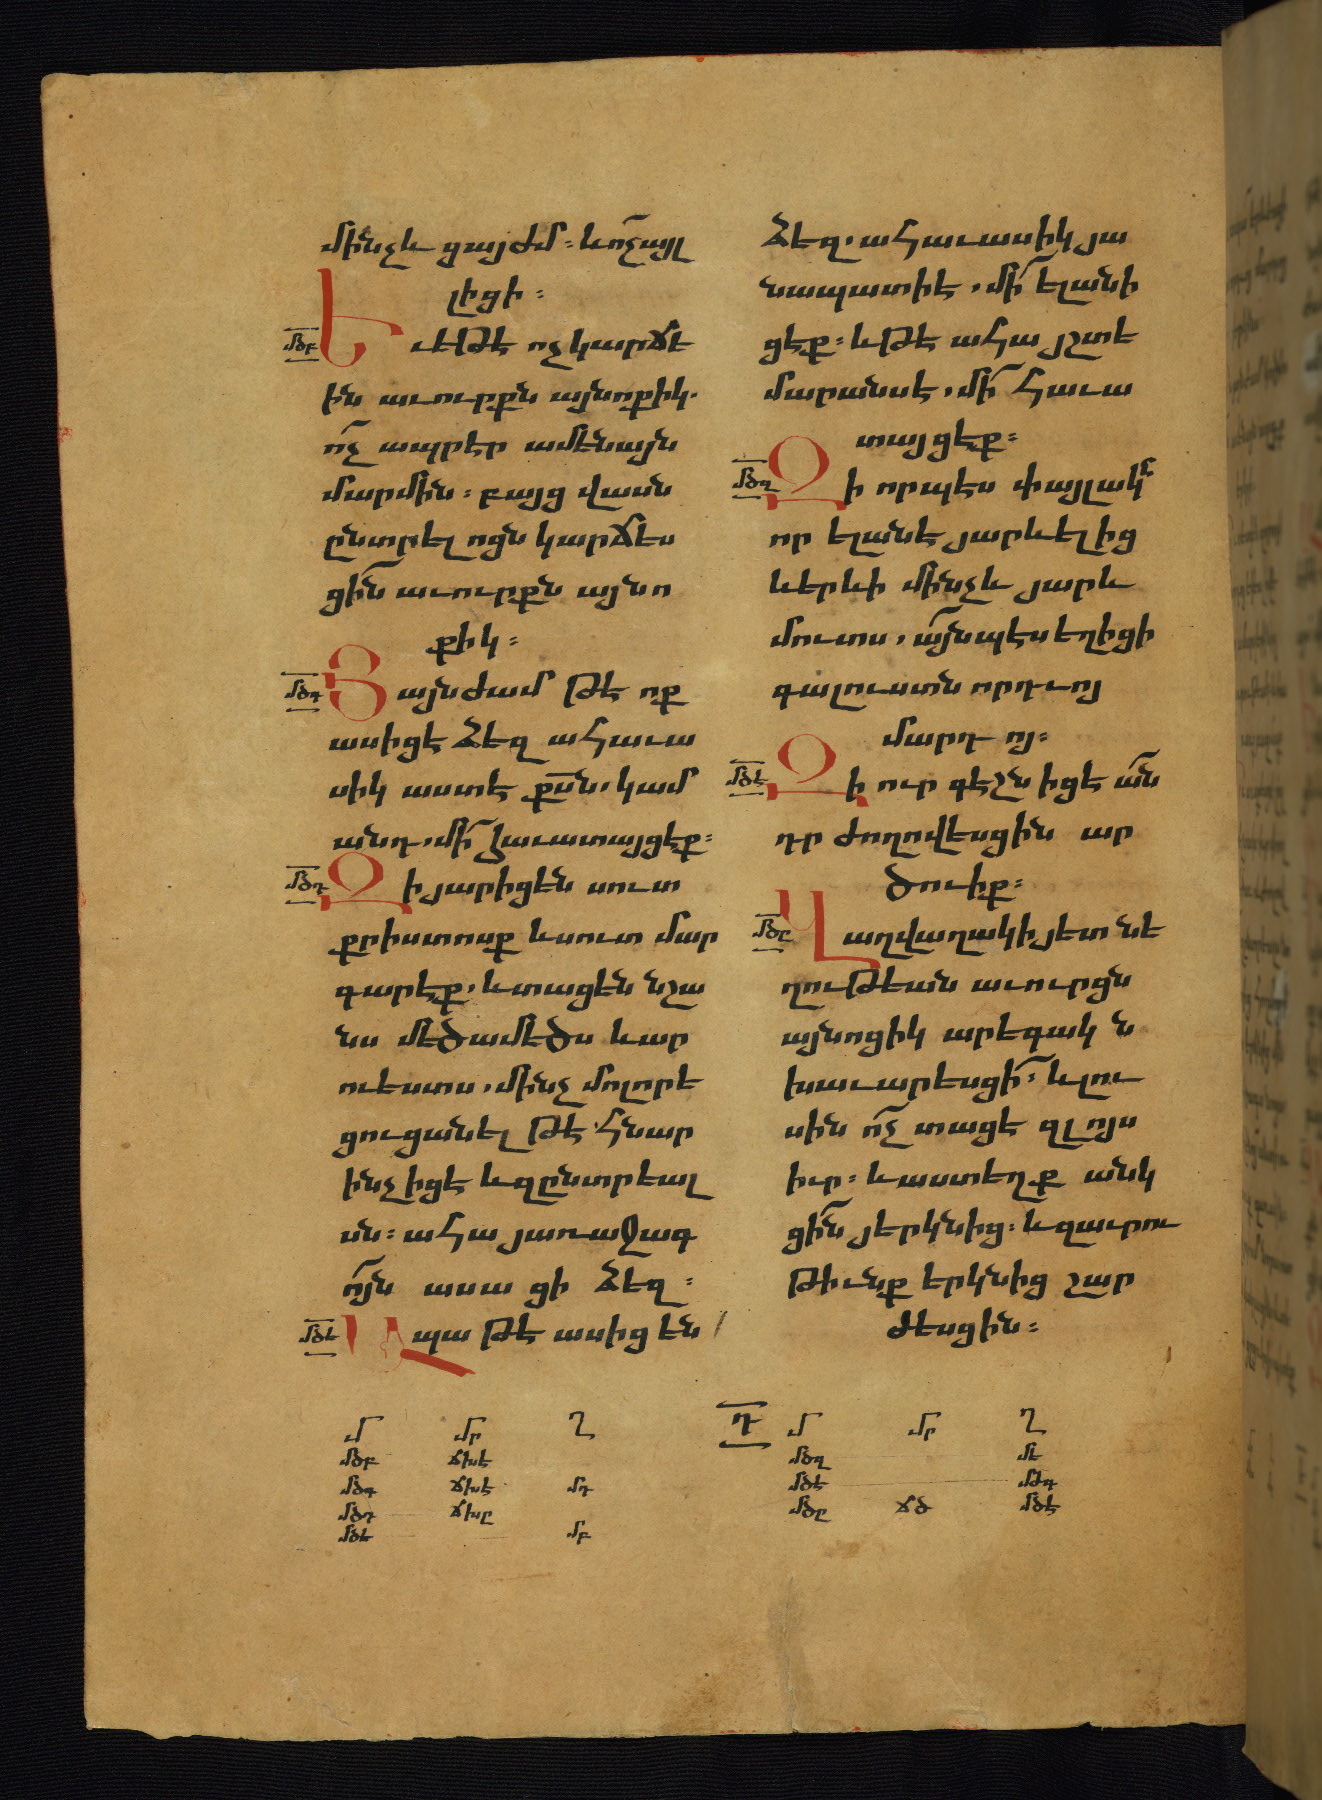 մինչև ցայժմ։ և ո՛չ այլ
լիցի։
մծբ Եւ եթէ ոչ կարճէ
ին աւուրքն այնոքիկ.
ո՛չ ապրէր ամենայն
մարմին։ բայց վասն
ընտրելոցն կարճես
ցին աւուրքն այնո
քիկ։
մծգ Յայնժամ թէ ոք
ասիցէ ձեզ ահաւա
սիկ աստէ քսն. կամ
անդ. մի՛ հաւատայցէք։
մծդ Զի յարիցեն սուտ
քրիստոսք և սուտ մար
գարեք. և տացեն նշա
նս մեծամեծս և ար
ուեստս. մինչ մոլորե
ցուցանել թէ հնար
ինչ իցէ և զընտրեալ
սն։ ահա յառաջագ
ո՛յն ասացի ձեզ։
մծե Ապա թէ ասիցեն
ձեզ. ահաւասիկ յա
նապատի է. մի՛ ելանի
ցէք։ և թէ ահա յշտե
մարանս է. մի՛ հաւա
տայցէք։
մծզ Զի որպէս փայլակն
որ ելանէ յարևելից
և երևի մինչև յարև
մուտս. այնպէս եղիցի
գալուստն որդւոյ
մարդոյ։
մծէ Զի ուր գէշն իցէ ան
դր ժողովեսցին ար
ծուիք։
մծը Վաղվաղակի յետ նե
ղութեան աւուրցն
այնոցիկ արեգակն
խաւարեսցի՛։ և լու
սին ո՛չ տացէ զլոյս
իւր։ և աստեղք անկ
ցին յերկնից։ և զաւրու
թիւնք երկնից շար
ժեսցին։
մ մր ղ
մծբ ճխէ
մծգ ճխէ մդ
մծդ ճխը
մծե մբ
դ մ մր ղ
մծզ մե
մծէ մխգ
մծը ճծ մծէ